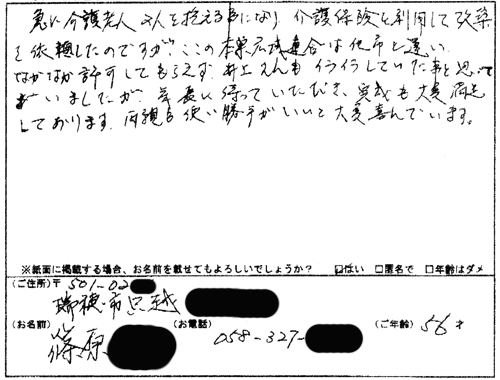 急に介護老人 さんを抱える事になり 介護保険を利用して改築
を依頼したのですが、ここの本巣広域連合は他市と違い、
なかなか許可してもらえず、井上さんもイライラしていた事と思って
いましたが、気長に待っていただき、完成も大変満足
しております。両親も使い勝手がいいと大変喜んでいます。
※紙面に掲載する場合、お名前を載せてもよろしいでしょうか? ☑はい □匿名で □年齢はダメ
(ご住所)〒501-02
瑞穂市只越
(お名前) 篠原 (お電話) 058-327- (ご年齢) 56才